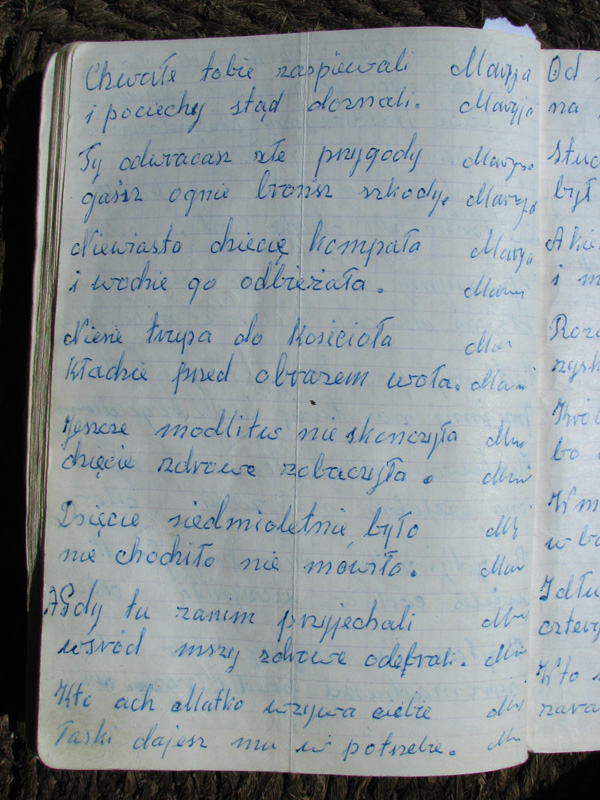 Chwałe tobie zaśpiewali Maryja
i pociechy stąd doznali. Maryja
Ty odwracasz złe przygody Maryja
gasisz ognie bronisz szkody. Maryja
Niewiasta dziecię kompała Maryja
i wodzie go odbieżała. Mary
Niesie trupa do Kościoła Mar
Kładzie przed obrazem woła. Mari
Jeszcze modlitw nie skończyła Mar
dzięcie zdrowe zobaczyła. Mar
Dzięcie siedmioletnię było Ma
nie chodziło nie mówiło. Mar
A Gdy tu zanim przyjechali Mar
wśród mszy zdrowe odebrali. Mar
Kto ach Matko wzywa ciebie Mar
Łaski dajesz mu w potrzebie. Ma
Od
na
stuc
był
A kie
i m
Roz
zysk
Kró
bo
W m
w bo
I dłu
cztery
Kto
zara